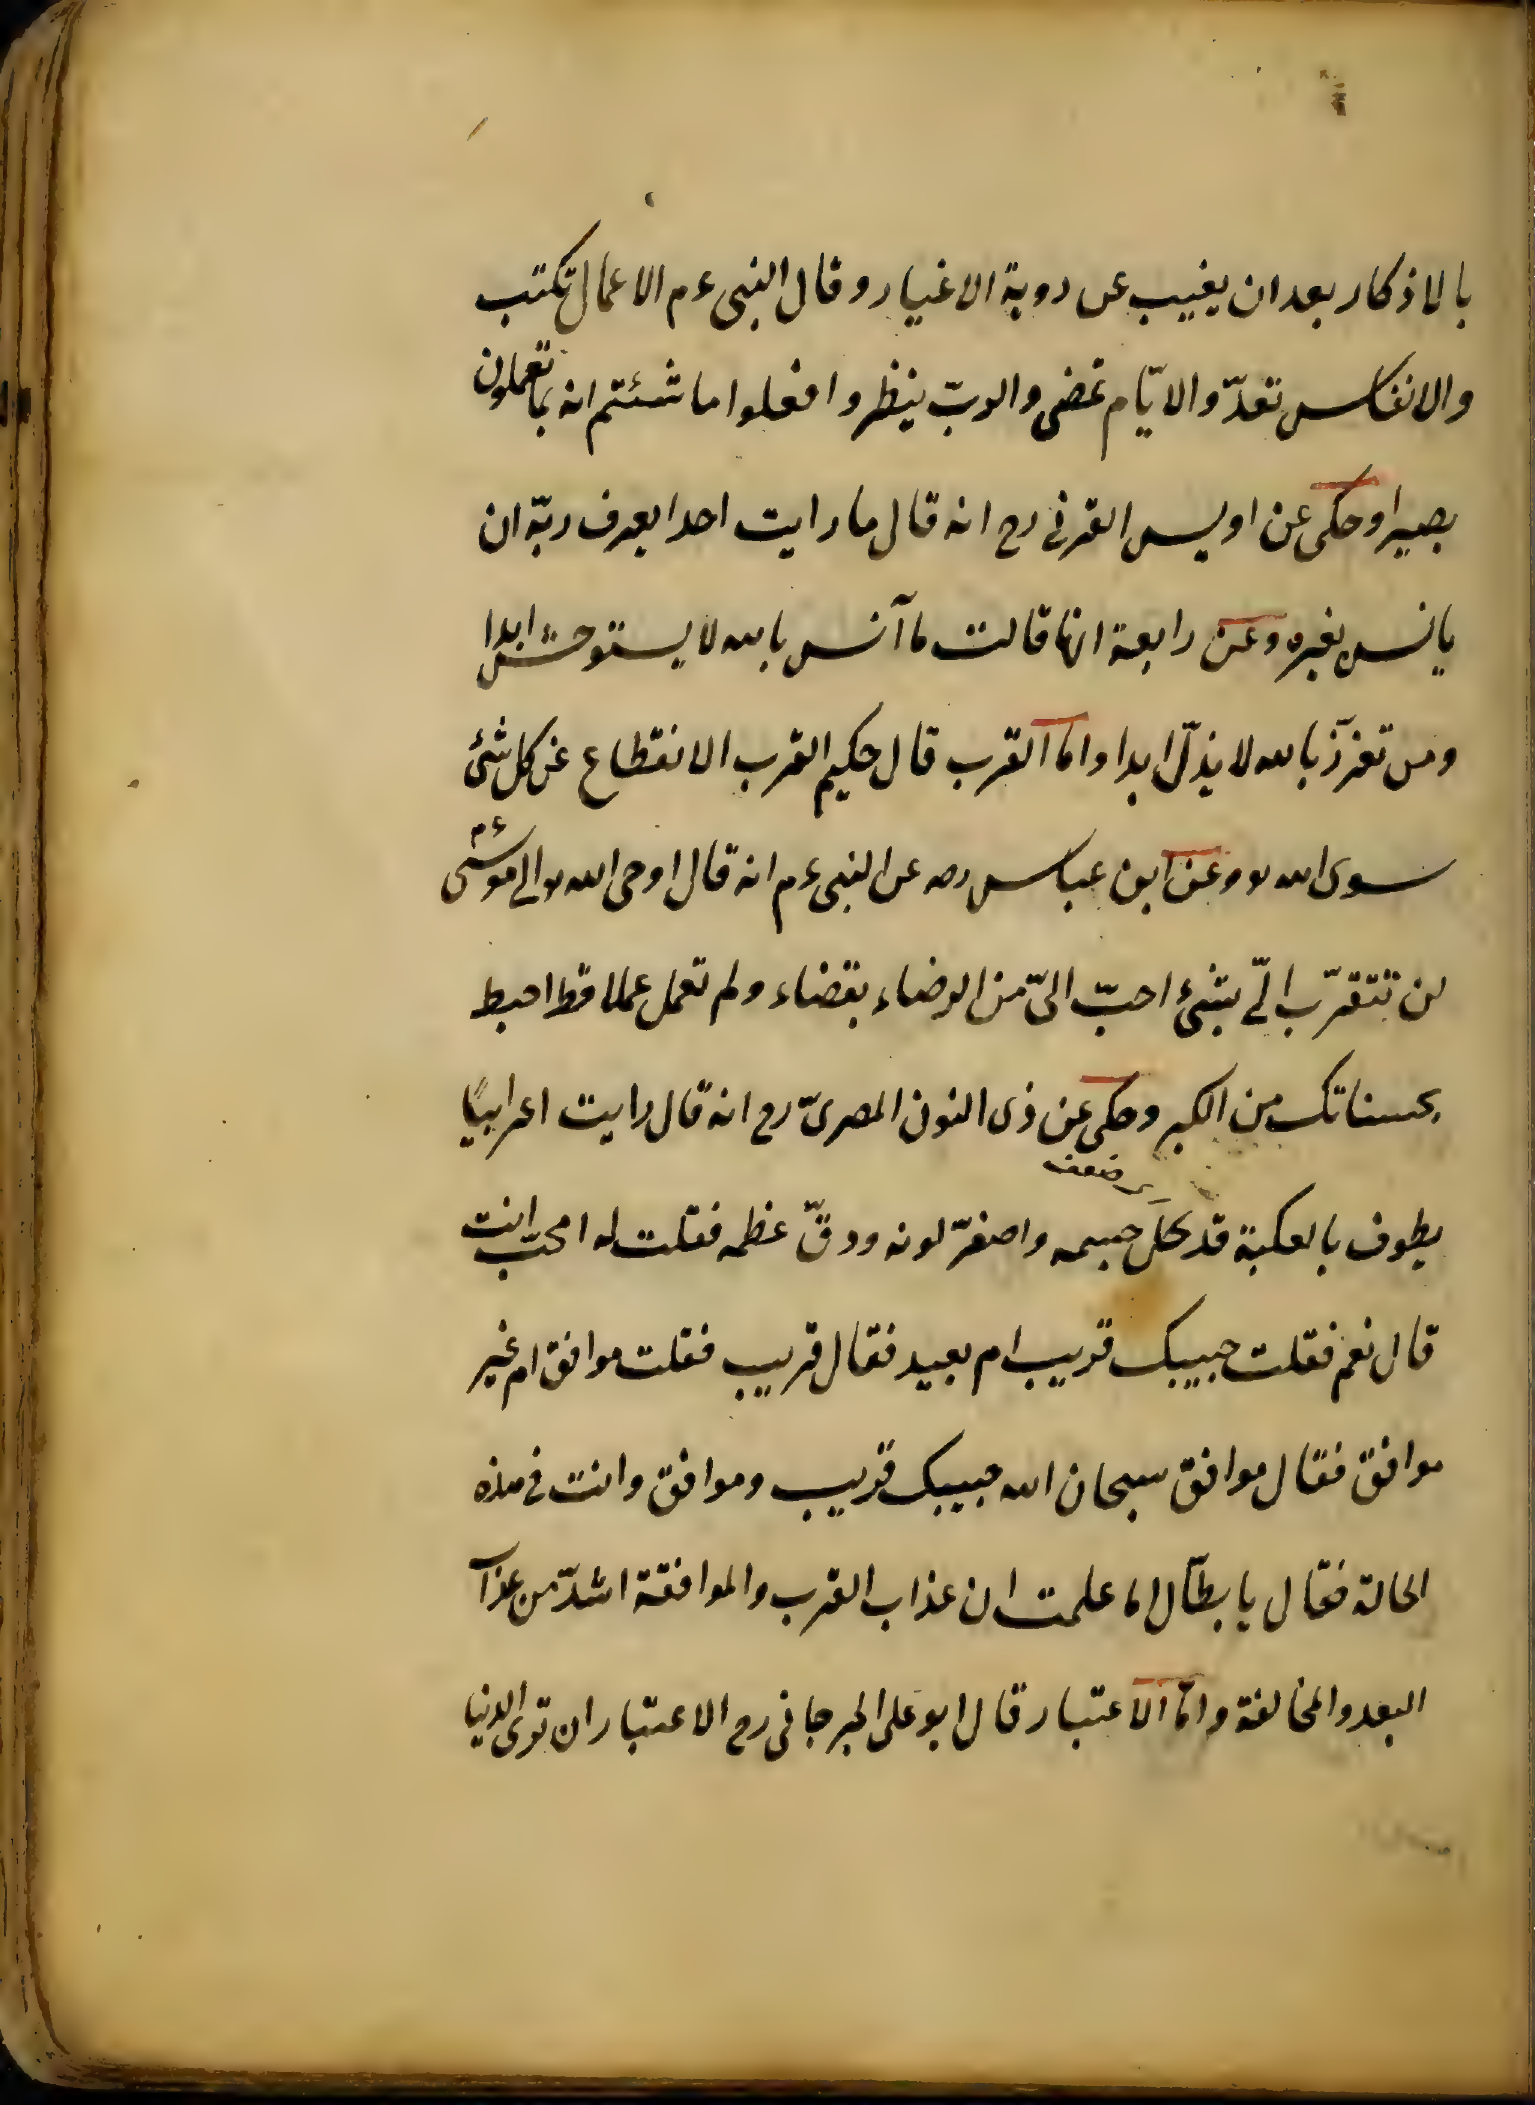 بالاذكار بعد ان يغيب عن روية الاغيار وقال النبى ءم الاعمال تكتب
والانفاس تعدّ والايّام تمضى والربّ ينظر وافعلوا ما شئتم انه بما تعملون
بصيرا وحكى عن اويس القرنى رح انه قال ما رايت احدا يعرف ربّه ان
يانس بغيره وعن رابعة انها قالت ما آنس بالله لا يستوحش ابدا
ومن تعزز بالله لا يذلّ ابدا واما القرب قال حكيم القرب الانقطاع عن كل شئ
سوى الله تع وعن ابن عباس رضه عن النبى ءم انه قال اوحى الله تع الى موسى ءم
لن تتقرّب الىّ بشئ احبّ الىّ من الرضاء بقضاء ولم تعمل عملا قط احبط
بحسناتك من الكبر وحكى عن ذى النون المصرىّ رح انه قال رايت اعرابيًا
ضعف
يطوف بالعكبة قد نحل جسمه واصفرّ لونه ودقّ عظمه فقلت له امحبّ انت
قال نعم فقلت حبيبك قريب ام بعيد فقال قريب فقلت موافق ام غير
موافق فقال موافق سبحان الله حبيبك قريب وموافق وانت فى هذه
الحالة فقال يا بطّال اما علمت ان عذاب القرب والموافقة اشدّ من عذآ
البعد والمخالفة واما الاعتبار قال ابو على الجرجانى رح الاعتبار ان ترى الدنيا